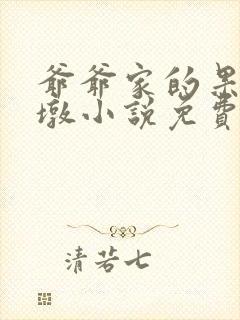 爺爺家的果
墩小說免費
清若七